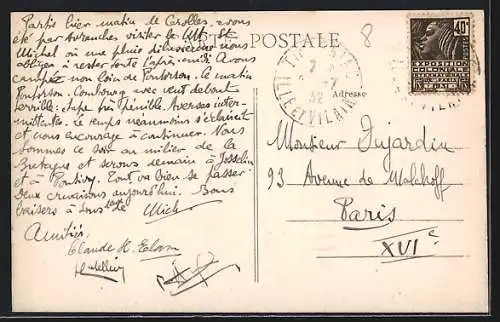 Partis hier matin de Carolles, avons
été par Avranches visiter le Mt St
Michel où une pluie diluvienne nous
obligea à rester toute l'après-midi. Avons
campé non loin de Pontorson. Ce matin
Pontorson - Combourg avec vent debout
terrible : étape très pénible. Averses inter-
mittentes. Le temps néanmoins s'éclaircit
et nous encourage à continuer. Nous
sommes ce soir au milieu de la
Bretagne et serons demain à Josselin
et à Pontivy. Tout va bien se passer.
Deux crevaisons aujourd'hui. Bons
baisers à tous
Mich
Amitiés
Claude R.
POSTALE
8
Adresse
ILLE ET VILAINE
7
32
40c
EXPOSITION
COLONIALE
INTERNATIONALE
PARIS
1931
Monsieur Dujardin
93 Avenue de Malakoff
Paris
XVIe